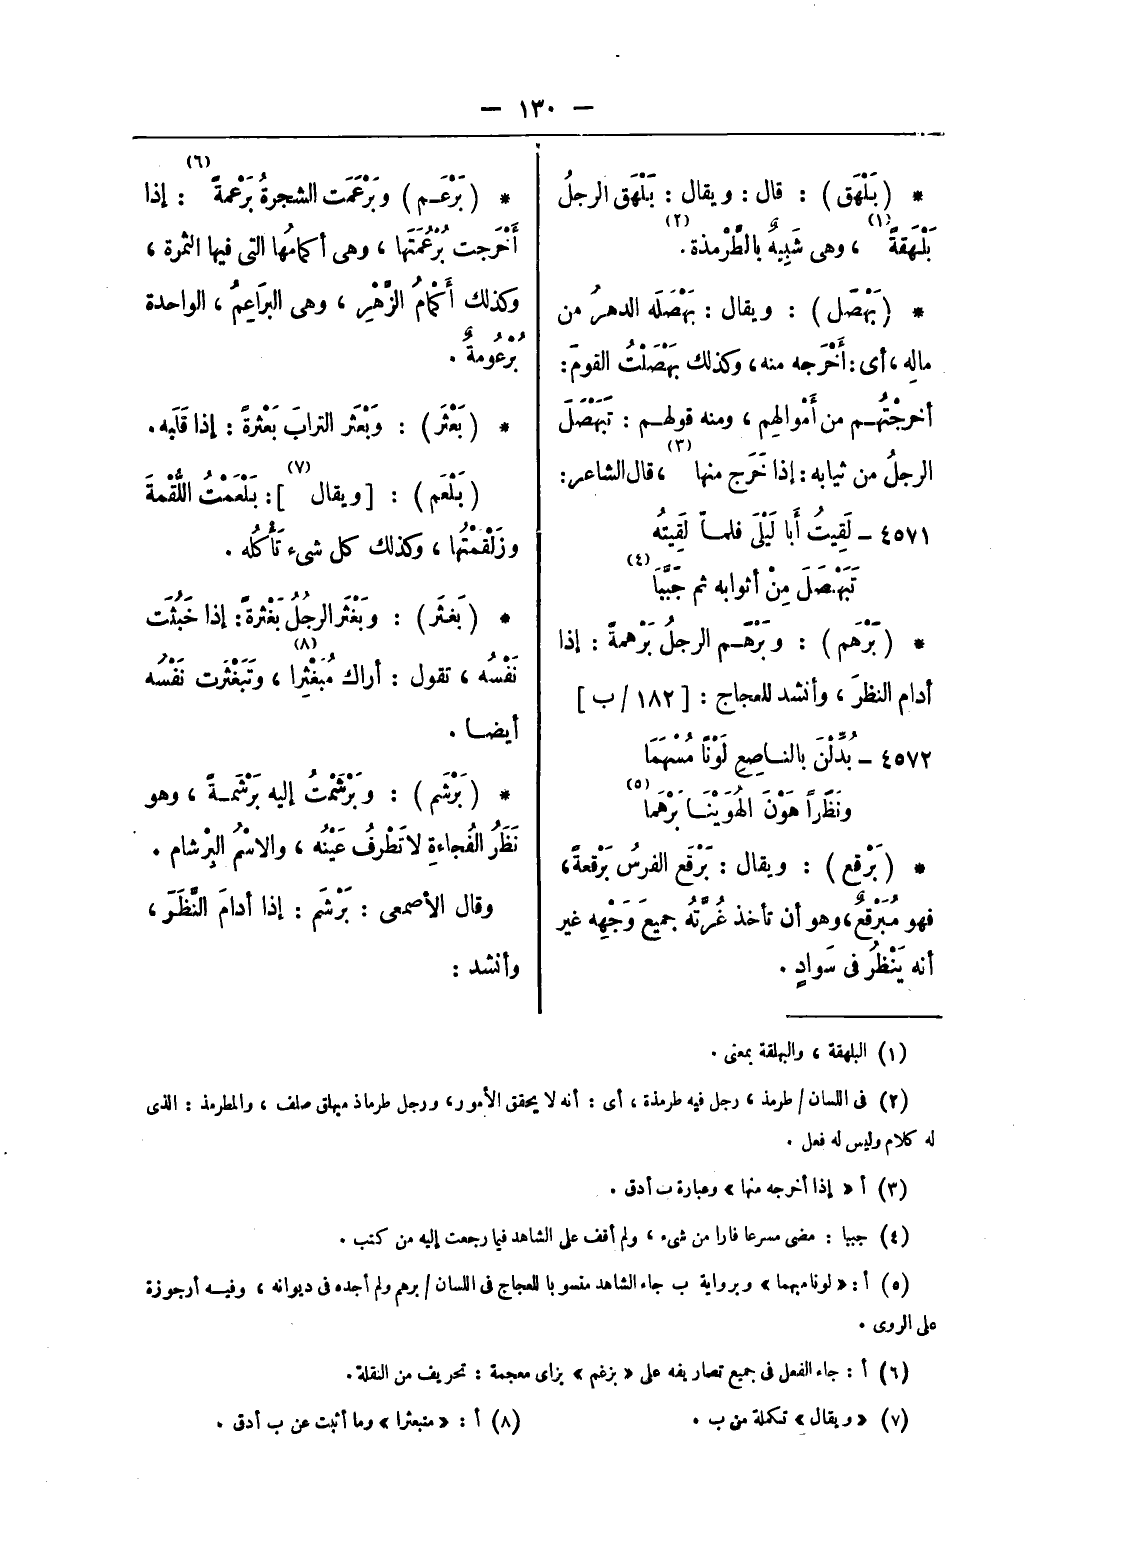 — ١٣٠ —
* ( بَلْهَق ) : قال : ويقال : بَلْهَق الرجلُ
بَلْهَقةً (١) ، وهى شَبِيهٌ بالطَّرْمذة (٢).
* ( بَهْصَل ) : ويقال : بَهْصَلَه الدهرُ من
مالِه ، أى : أَخْرَجه منه ، وكذلك بَهْصَلْتُ القومَ :
أخرجْتُهـم من أَمْوالهِم ، ومنه قولهـم : تَبَهْصَلَ
الرجلُ من ثيابه : إذا خَرَج منها (٣) ، قال الشاعر :
٤٥٧١ – لَقِيتُ أَبا لَيْلَى فلمـا لَقِيتُه
تَبَهْصَلَ مِنْ أثوابه ثم جَبَّبَا (٤)
* ( بَرْهَم ) : وبَرْهَـم الرجلُ بَرْهمةً : إذا
أدام النظرَ ، وأنشد للعجاج : [ ١٨٢ / ب ]
٤٥٧٢ – بُدِّلْنَ بالنـاصِعِ لَوْنًا مُسْهَمَا
ونَظَراً هَوْنَ الهُوَيْنَـا بَرْهَما (٥)
* ( بَرْقع ) : ويقال : بَرْقَع الفرسُ بَرْقعةً ،
فهو مُبَرْقعٌ ، وهو أن تأخذ غُرَّتُه جميعَ وَجْهِه غير
أنه يَنْظُرُ فى سَوادٍ .
* ( بَرْعَـم ) وبَرْعَمَت الشجرةُ بَرْعمةً (٦) : إذا
أَخْرَجت بُرْعُمَتَها ، وهى أكمامُها التى فيها الثمرة ،
وكذلك أَكْمامُ الزَّهْرِ ، وهى البرَاعِمُ ، الواحدة
بُرْعُومةٌ .
* ( بَعْثَر ) : وبَعْثَر الترابَ بَعْثرةً : إذا قَلَبه .
( بَلْعَم ) : [ ويقال (٧) ] : بَلْعَمْتُ اللُّقْمةَ
وزَلْقَمْتُها ، وكذلك كل شىء تَأْكُله .
* ( بَغثَر ) : وبَغْثَر الرجلُ بَغْثرةً : إذا خَبُثَت
نَفْسُه ، تقول : أراك مُبَغْثِرا (٨) ، وتَبَغْثَرت نَفْسُه
أيضـا .
* ( بَرْشَم ) : وبَرْشَمْتُ إليه بَرْشَمـةً ، وهو
نَظَرُ الفُجاءةِ لاتَطْرفُ عَيْنُه ، والاسْمُ البِرْشام .
وقال الأصمعى : بَرْشَم : إذا أدامَ النَّظَرَ ،
وأنشد :
(١) البلهقة ، والبهلقة بمعنى .
(٢) فى اللسان / طرمذ ، رجل فيه طرمذة ، أى : أنه لا يحقق الأمور ، ورجل طرماذ مبهلق صلف ، والمطرمذ : الذى
له كلام وليس له فعل .
(٣) أ « إذا أخرجه منها » وعبارة ب أدق .
(٤) جببا : مضى مسرعا فارا من شىء ، ولم أقف على الشاهد فيما رجعت إليه من كتب .
(٥) أ : « لونا مبهما » وبرواية ب جاء الشاهد منسوبا للعجاج فى اللسان / برهم ولم أجده فى ديوانه ، وفيـه أرجوزة
على الروى .
(٦) أ : جاء الفعل فى جميع تصاريفه على « بزغم » بزاى معجمة : تحريف من النقلة .
(٧) « ويقال » تكملة من ب .
(٨) أ : « متبعثرا » وما أثبت عن ب أدق .